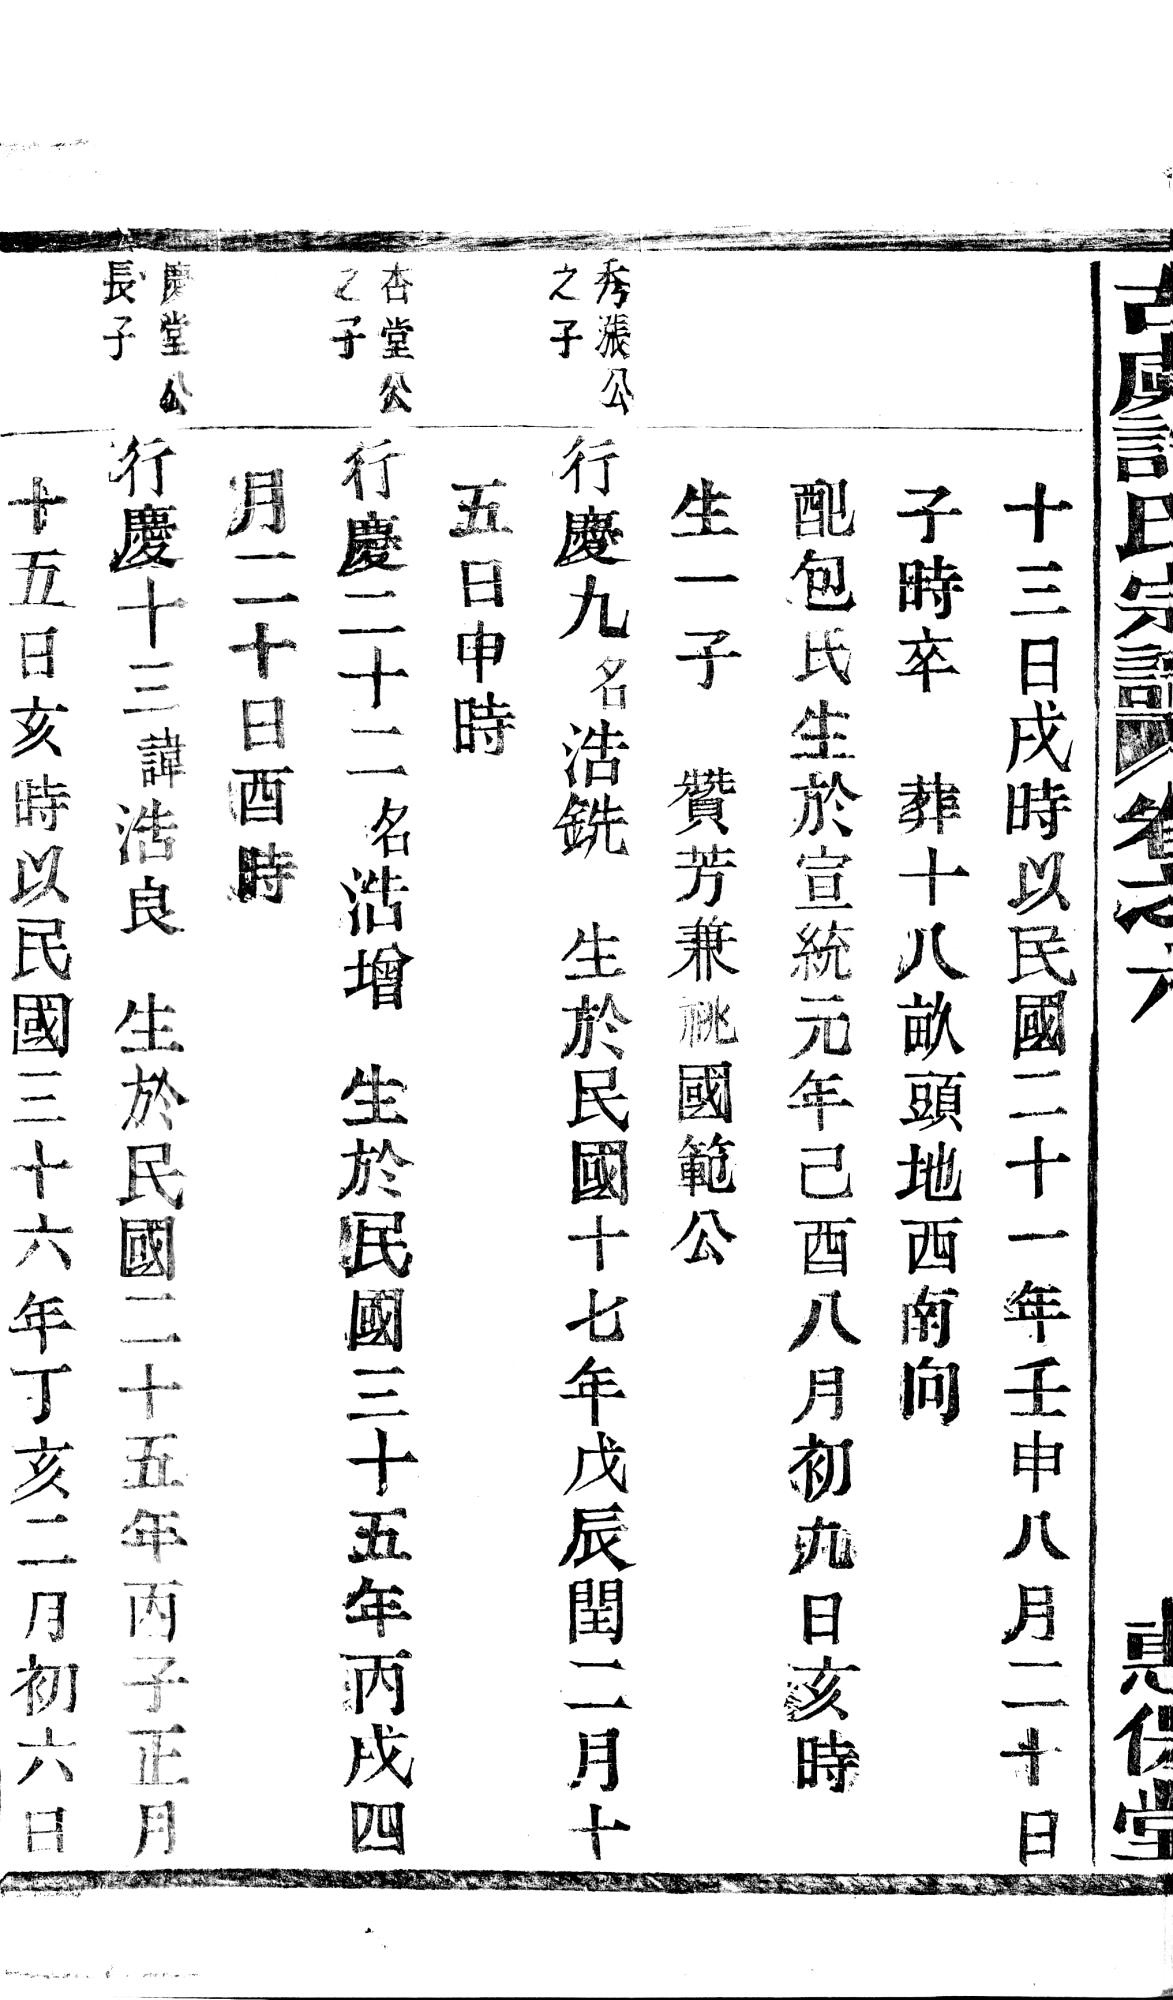 古虞許氏宗譜 卷之六 惠保堂
十三日戌時以民國二十一年壬申八月二十日
子時卒 葬十八畝頭地西南向
配包氏生於宣統元年己酉八月初九日亥時
生一子 贊芳兼祧國範公
秀漲公
之子
行慶九名浩銑 生於民國十七年戊辰閏二月十
五日申時
杏堂公
之子
行慶二十二名浩增 生於民國三十五年丙戌四
月二十日酉時
慶堂公
長子
行慶十三諱浩良 生於民國二十五年丙子正月
十五日亥時以民國三十六年丁亥二月初六日